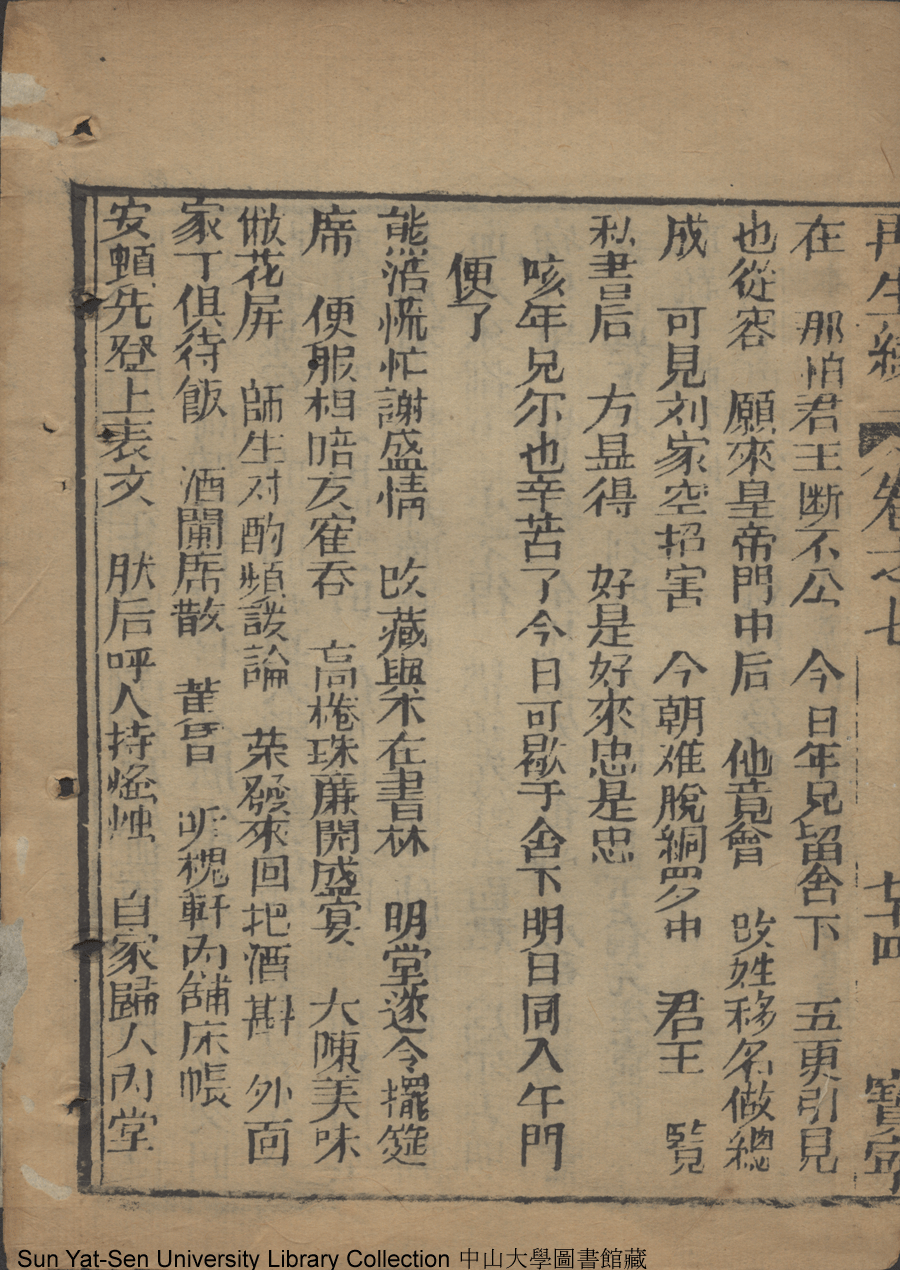 再生緣 卷之七 七十四 寶寧
在 那怕君王断不公 今日年兄留舍下 五更引見
也從容 願來皇帝門中后 他竟會 改姓移名做總
成 可見刘家空招害 今朝难脫網罗中 君王 覧
私書后 方显得 好是好來忠是忠
咳年兄尔也辛苦了今日可歇于舍下明日同入午門
便了
熊浩慌忙謝盛情 改藏與米在書林 明堂遂令擺筵
席 便服相陪友雀吞 高捲珠廉開盛宴 大陳美味
傲花屏 師生对酌頻談論 荣發來回把酒斟 外面
家丁俱待飯 酒闌席散 黄昏 听槐軒內舖床帳
安頓先登上表文 肰后呼人持 自家歸入內堂
Sun Yat-Sen University Library Collection 中山大學圖書館藏